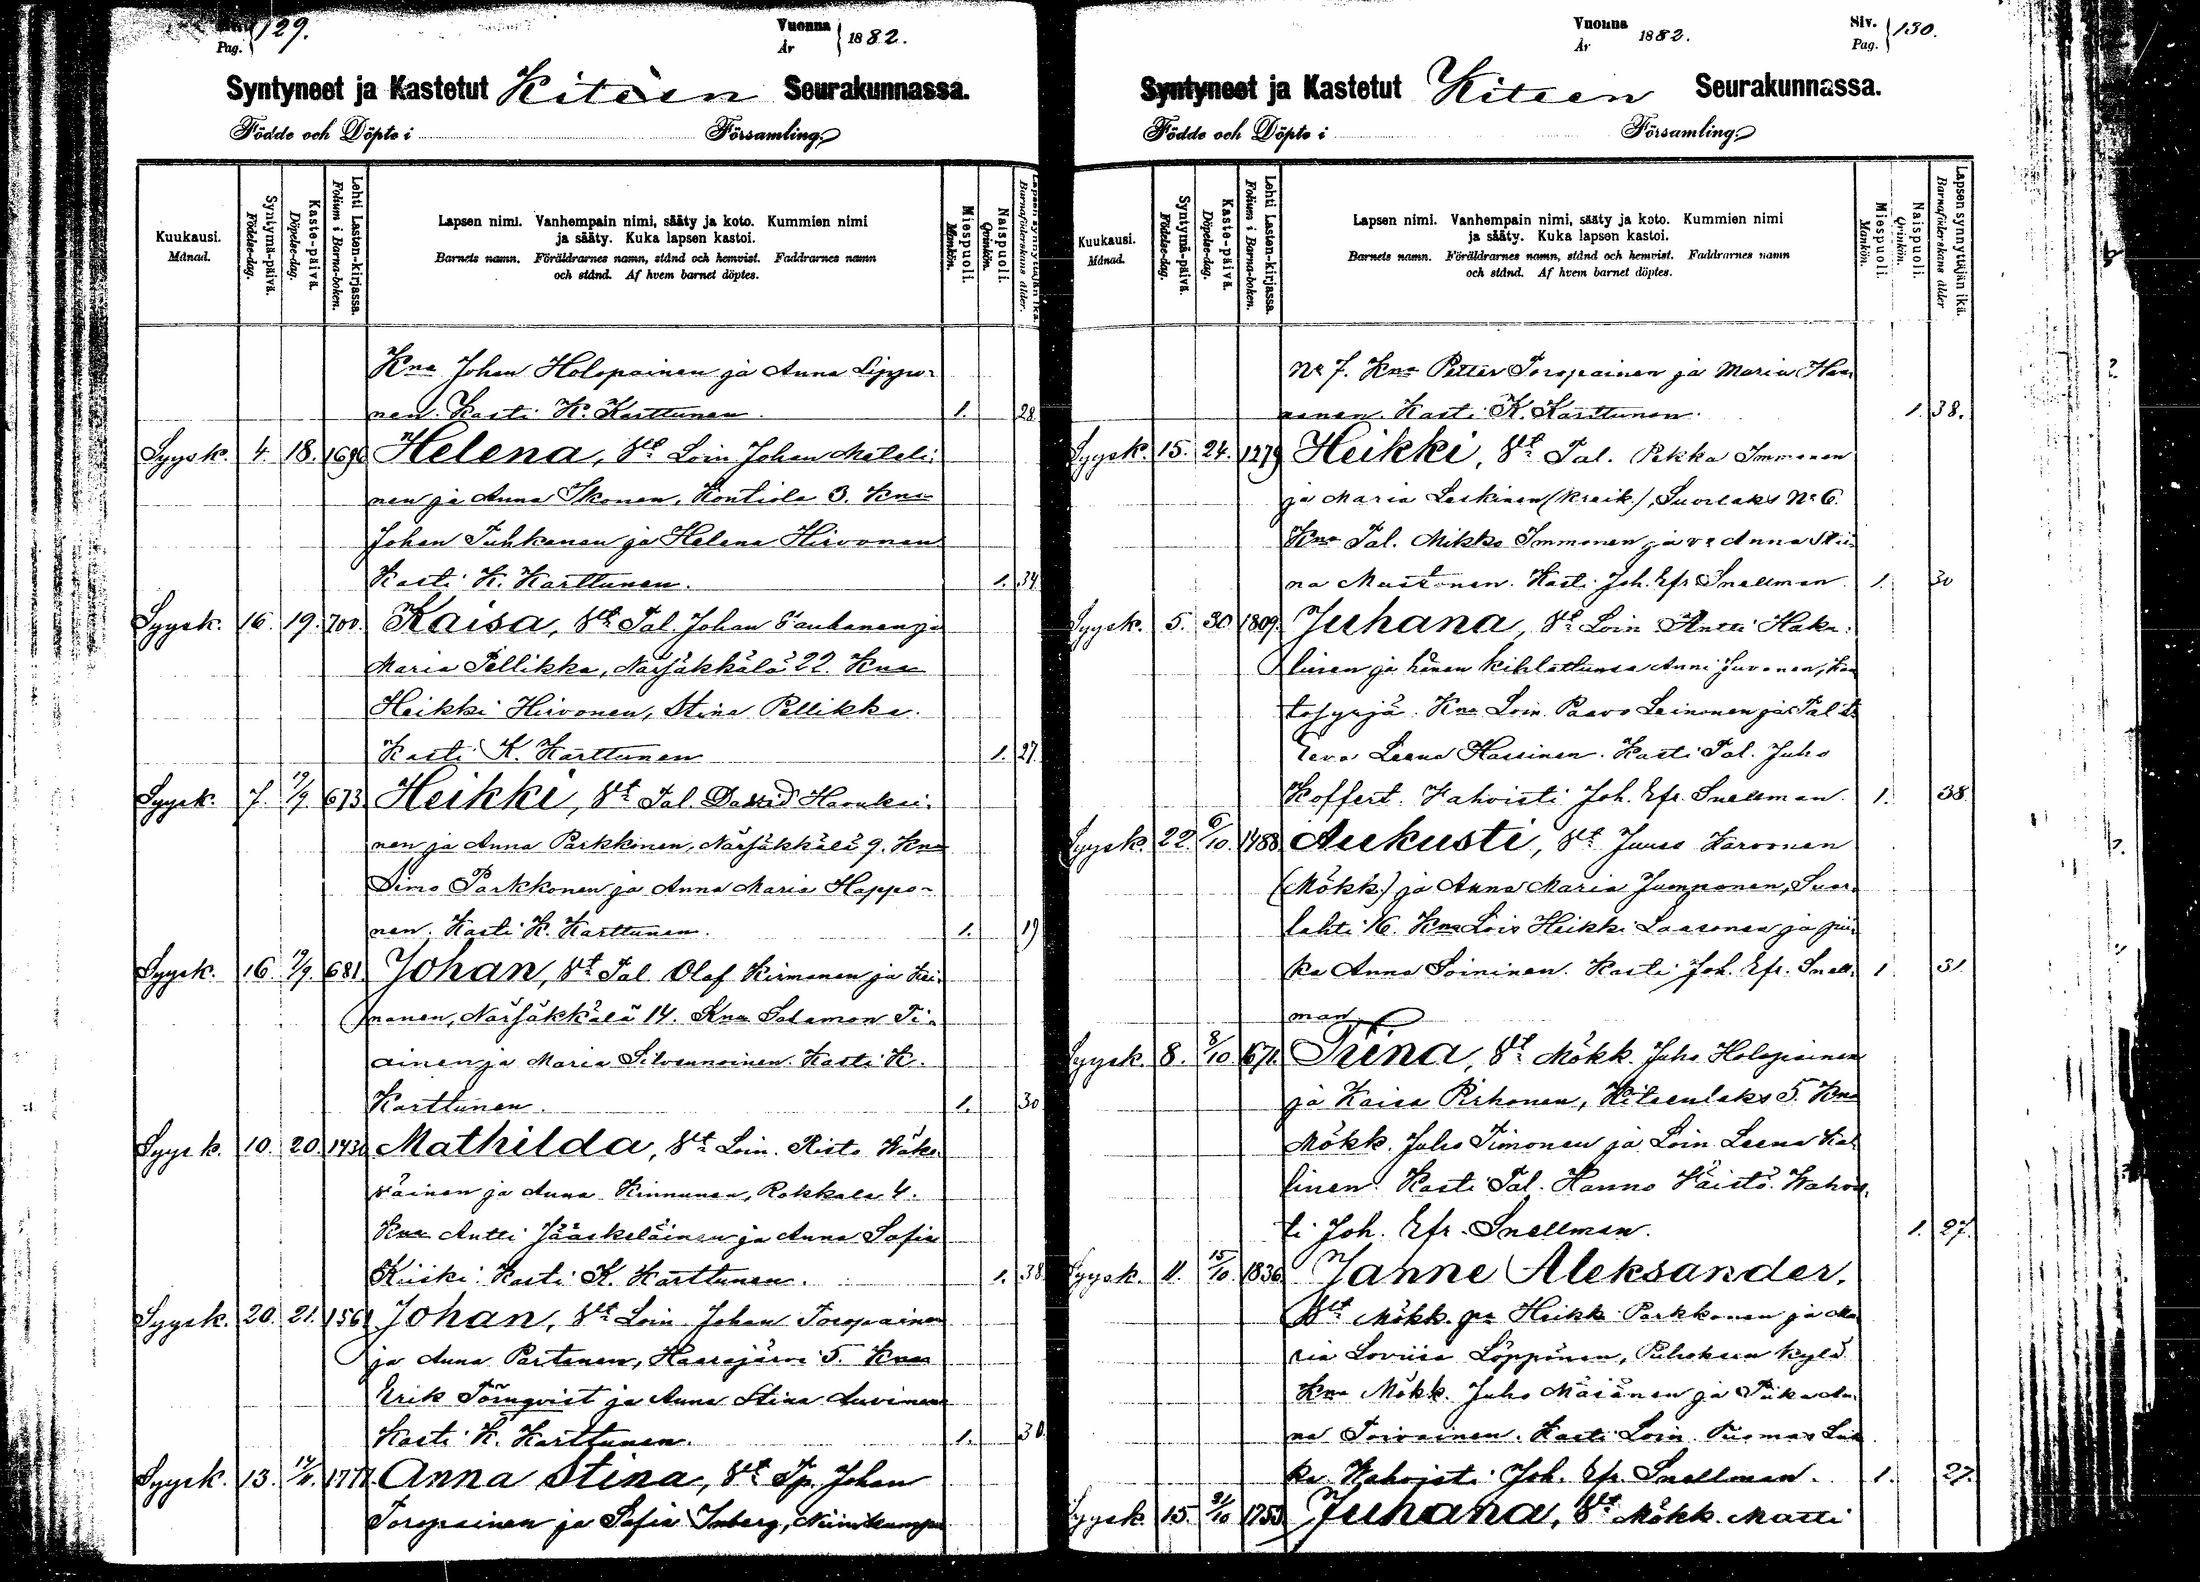 Pag. 129.
Vuonna
År
1882.
Syntyneet ja Kastetut Kiteen Seurakunnassa.
Födde och Döpte i Församling.
Kuukausi.
Månad.
Syntymä-päivä.
Födelse-dag.
Kaste-päivä.
Döpelse-dag.
Lehti Lasten-kirjassa.
Folium i Barna-boken.
Lapsen nimi. Vanhempain nimi, sääty ja koto. Kummien nimi
ja sääty. Kuka lapsen kastoi.
Barnets namn. Föräldrarnes namn, stånd och hemvist. Faddrarnes namn
och stånd. Af hvem barnet döptes.
Miespuoli.
Mankön.
Naispuoli.
Qvinkön.
Lapsen synnyttäjän ikä.
Barnaföderskans ålder.
Kna Johan Holopainen ja Anna Lippo-
nen. Kasti K. Karttunen. 1. 28
Syysk. 4. 18. 1696 Helena, Vt Loin Johan Matali-
nen ja Anna Ikonen, Kontiola 3. Kna
Johan Tuhkanen ja Helena Hirvonen
Kasti K. Karttunen. 1. 34
Syysk. 16. 19. 700. Kaisa, Vt Tal. Johan Paukanen ja
Maria Pellikka, Närsäkkälä 22. Kna
Heikki Hirvonen, Stina Pellikka.
Kasti K. Karttunen 1. 27
Syysk. 7. 19/9 673 Heikki, Vt Tal. David Haruksi-
nen ja Anna Parkkonen, Närsäkkälä 9. Kna
Simo Parkkonen ja Anna Maria Happo-
nen. Kasti K. Karttunen. 1. 19
Syysk. 16 /9. 681. Johan, Vt Tal Olof Kirmanen ja
nanen, Närsäkkälä 14. Kna Salamon Ti-
ainen ja Maria Silvennoinen. Kasti K.
Karttunen. 1. 30
Syysk. 10. 20. 1430 Mathilda, Vt Loin. Risto Wäke-
väinen ja Anna Kinnunen, Rokkala 4.
Kna Antti Jääskeläinen ja Anna Sofia
Kiiski. Kasti K. Karttunen. 1. 38
Syysk. 20. 21. 1561 Johan, Vt Loin Johan Toropainen
ja Anna Partanen, Haarajärvi 5. Kna
Erik Törnqvist ja Anna Stina Auvinen
Kasti K. Karttunen. 1. 30.
Syysk. 13. 1777 Anna Stina, Vt Tp. Johan
Toropainen ja Sofia Inberg, Niinikumpu
Vuonna
År
1882.
Siv.
Pag. 130.
Syntyneet ja Kastetut Kiteen Seurakunnassa.
Födde och Döpte i Församling.
Kuukausi.
Månad.
Syntymä-päivä.
Födelse-dag.
Kaste-päivä.
Döpelse-dag.
Lehti Lasten-kirjassa.
Folium i Barna-boken.
Lapsen nimi. Vanhempain nimi, sääty ja koto. Kummien nimi
ja sääty. Kuka lapsen kastoi.
Barnets namn. Föräldrarnes namn, stånd och hemvist. Faddrarnes namn
och stånd. Af hvem barnet döptes.
Miespuoli.
Mankön.
Naispuoli.
Qvinkön.
Lapsen synnyttäjän ikä.
Barnaföderskans ålder
No 7. Kna Petter Toropainen ja Maria
nonen. Kasti K. Karttunen. 1. 38.
Syysk. 15. 24. 1279 Heikki, Vt Tal. Pekka Immonen
ja Maria Laskinen (kreik.), Suorlaks No 6.
Kna Tal. Mikko Immonen ja vo Anna Stii-
na Mustonen. Kasti Joh. Efr. Snellman 1. 30
Syysk. 5. 30 1809. Juhana, Vt Loin Antti Haka-
linen ja hänen kihlattunsa Anni Juvonen, Kan
tosyrjä. Kna Loin. Paavo Leinonen ja Tal
Eeva Leena Hassinen. Kasti Tal. Juho
Koffert. Vahvisti Joh. Efr. Snellman. 1. 38
Syysk. 22. 6/10. 1488 Aukusti, Vt Juuso Karvonen
(Mökk.) ja Anna Maria Jumponen, Suor-
lahti 16. Kna Lois Heikki Laasonen ja pii-
ka Anna Soininen. Kasti Joh. Efr. Snell- 1. 31.
man
Syysk. 8. 8/10. 671. Triina, Vt Mökk. Juho Holopainen
ja Kaisa Pirhonen, Kiteenlaks 5. Kna
Mökk. Juho Timonen ja Loin Leena Kal
linen. Kasti Tal. Hanno Väistö. Wahvis-
ti Joh. Efr. Snellman. 1. 27.
Syysk. 11. 15/10. 1836 Janne Aleksander,
Vt Mökk. pa Heikki Parkkonen ja Ma
ria Loviisa Löppönen, Puhoksen kylä
Kna Mökk. Juho Mäsänen ja Piika An-
na Toivainen. Kasti Loin. Tuomas
ka. Vahvisti Joh. Efr. Snellman. 1. 27.
Syysk. 15. 21/10 1753 Juhana, Vt Mökk. Matti